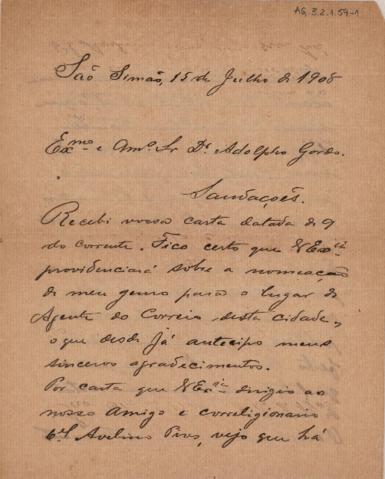 AG.3.2.1.54-1
São Simão, 15 de Julho de 1908
Exmo e Amo Sr Dr Adolpho Gordo.
Saudações.
Recebi vossa carta datada de 9
do corrente. Fico certo que VExcia
providenciará sobre a nomeação
de meu genro para o lugar de
Agente do Correio desta cidade,
o que desde já antecipo meus
sinceros agradecimentos.
Por carta que VExcia dirigio ao
nosso amigo e correligionario
Cel Avelino, vejo que há